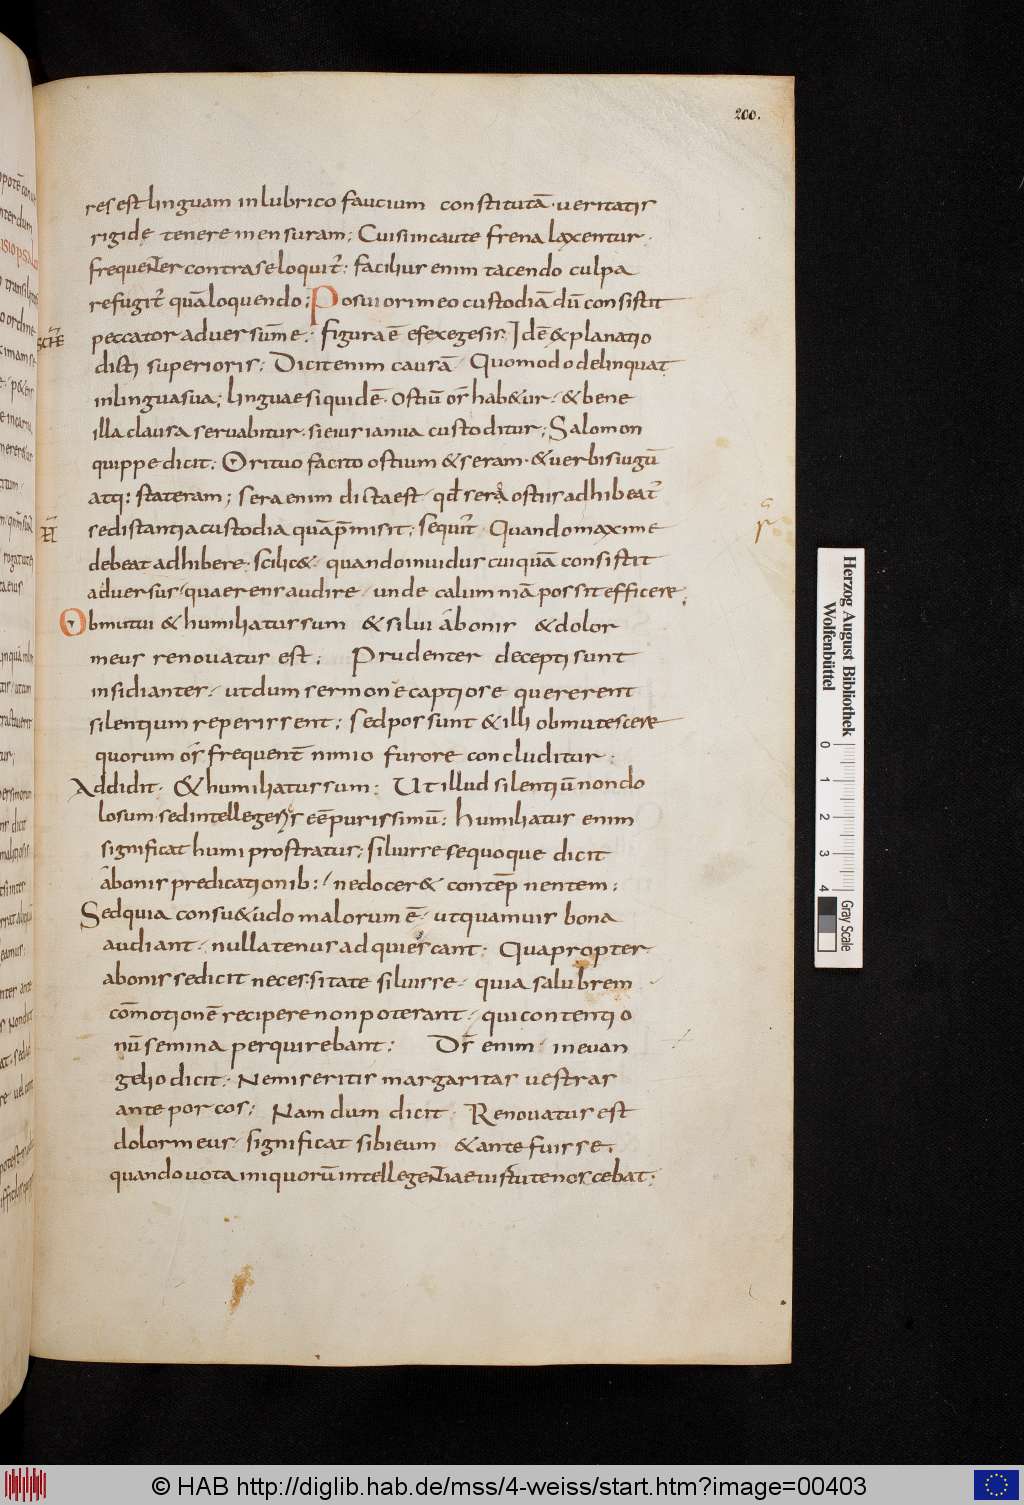 200.
res est linguam in lubrico faucium constitutā · ueritatis
rigidę tenere mensuram; Cui si incaute frena laxentur ·
frequenter contra se loquit̄ : facilius enim tacendo culpa
refugit̄ quā loquendo; Posui ori meo custodiā dū consistit
peccator aduersū me; figura ē efexegesis · Idē & planatio
dicti superioris; Dicit enim causā · Quomodo delinquat
in lingua sua; linguae siquidē · ostiū os̄ hab&ur · & bene
illa clausa seruabitur · si eius ianua custoditur; Salomon
quippe dicit; Ori tuo facito ostium & seram · & uerbis iugū
atq: stateram; sera enim dicta est · qđ sera ostiis adhibeat̄
sed istantia custodia quā p̄misit; sequit̄ · Quando maxime
debeat adhibere · scilic& · quando inuidus cuiquā consistit
aduersus · quaerens audire · unde calumniā possit efficere;
Obmutui & humiliatus sum & silui a bonis & dolor
meus renouatus est; Prudenter decepti sunt
insidiantes · ut dum sermone captiose quererent
silentium reperissent; sed possunt & illi obmutescere
quorum os̄ frequent̄ nimio furore concluditur;
Addidit · & humiliatus sum; Ut illud silentiū non do
losum · sed intellegeres eē purissimū; humiliatus enim
significat humi prostratus; siluisse se quoque dicit
a bonis predicationib: · ne docer& contēpnentem;
Sed quia consu&udo malorum ē · ut quamuis bona
audiant · nullatenus adquiescant; Quapropter
a bonis se dicit necessitate siluisse · quia salubrem
cōmotionē recipere non poterant · qui contentio
nū semina perquirebant; Dn̄s enim · in euan
gelio dicit · Ne miseritis margaritas uestras
ante porcos; Nam dum dicit · Renouatus est
dolor meus · significat sibi eum & ante fuisse ·
quando uota iniquorū intellegentiae uirtute noscebat ·
Herzog August Bibliothek
Wolfenbüttel
0 1 2 3 4
Gray Scale
© HAB http://diglib.hab.de/mss/4-weiss/start.htm?image=00403